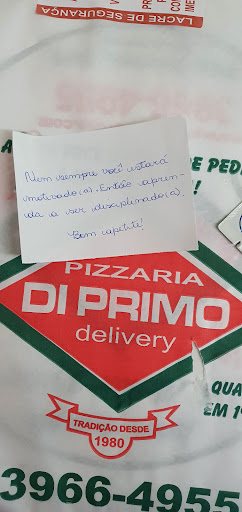 LACRE DE SEGURANÇA
Nem sempre você estará
motivado(a). Então apren-
da a ser disciplinado(a).
Bom apetite!
E PED
!
PIZZARIA
DI PRIMO
delivery
TRADIÇÃO DESDE
1980
QUA
EM 1
3966-4955